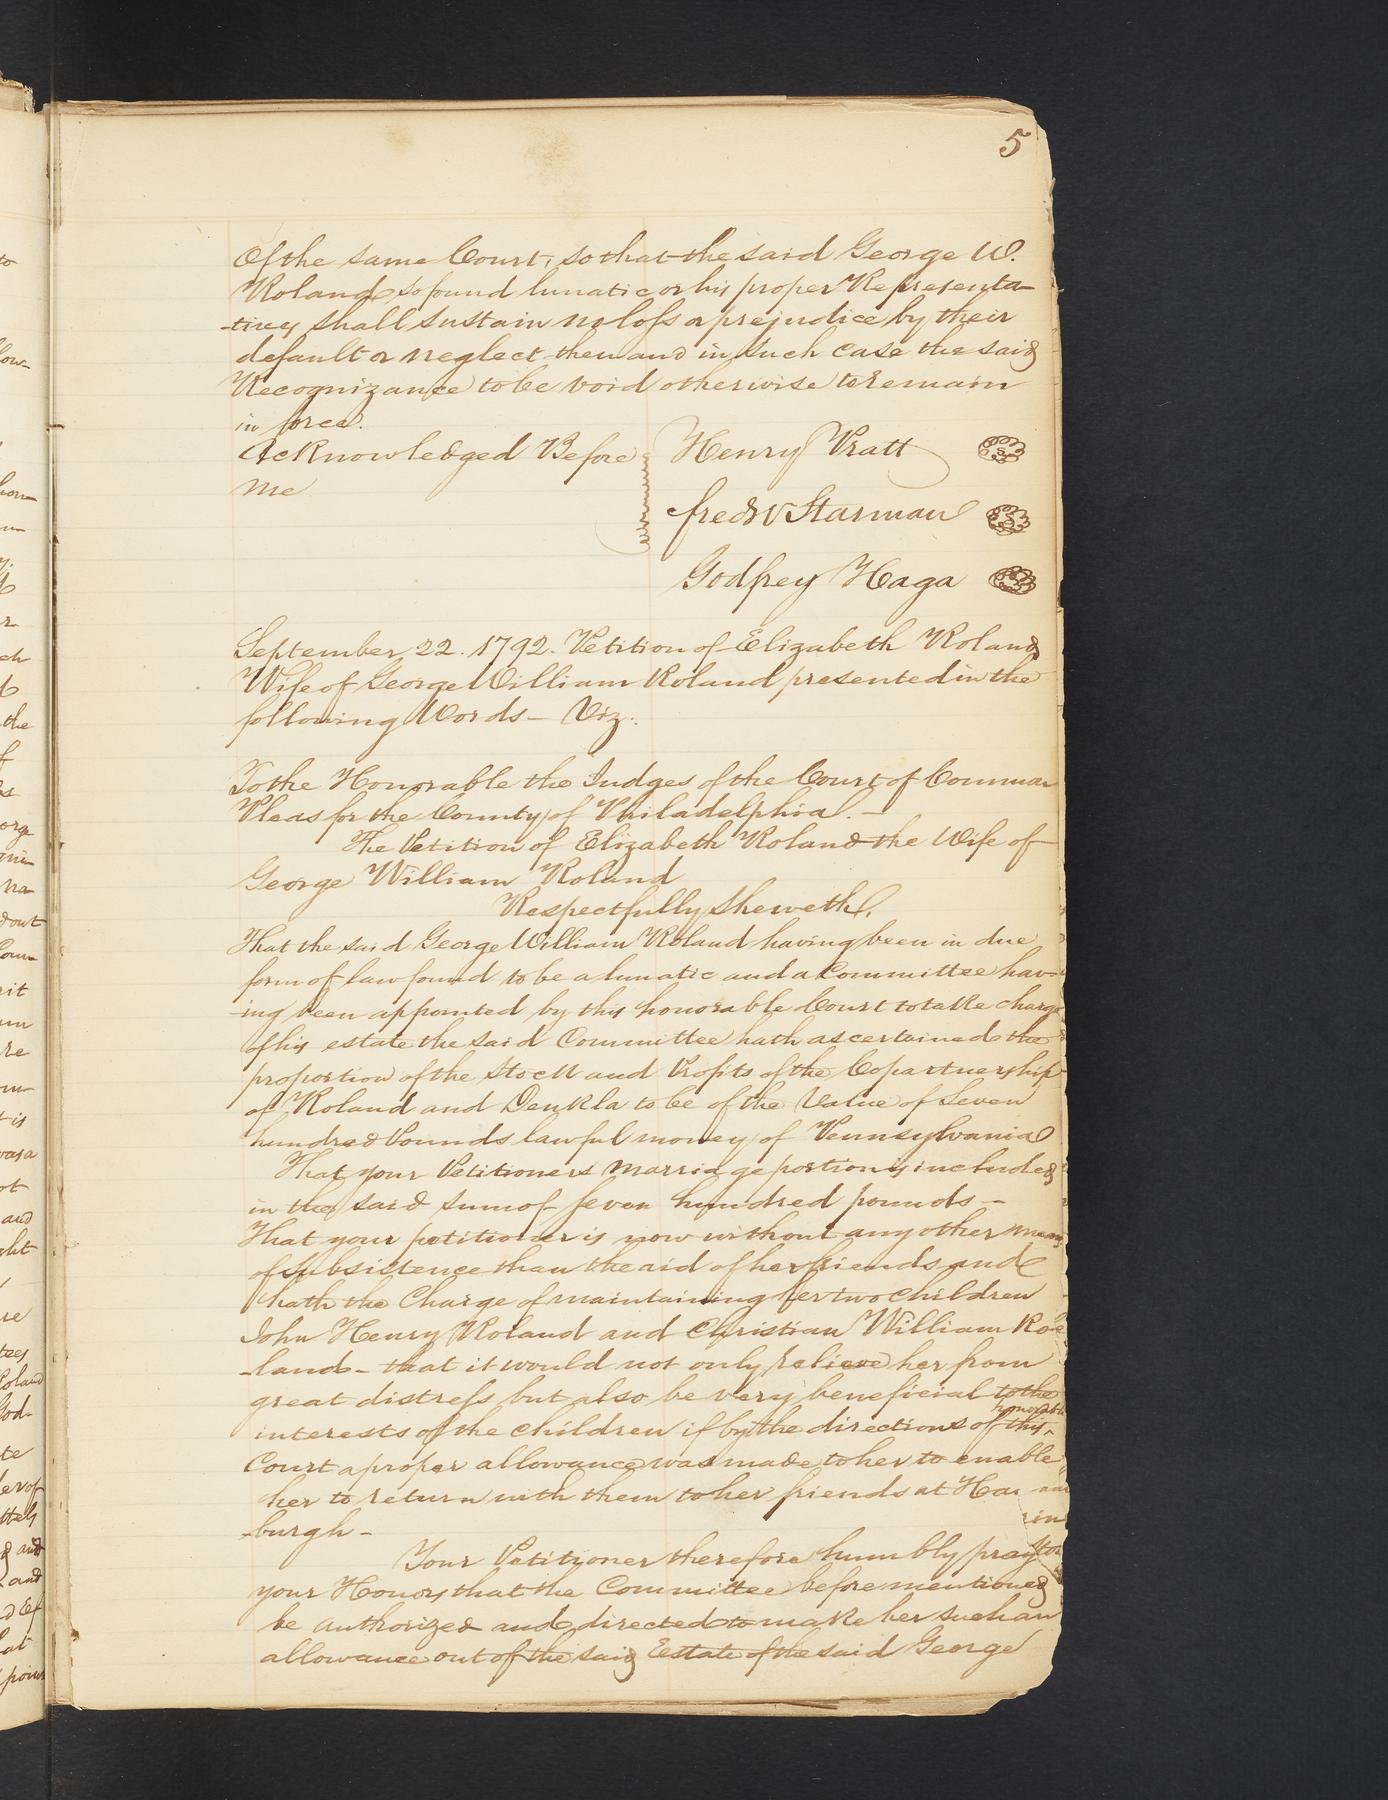 5
Of the same Court, so that the said George W.
Roland, so found lunatic or his proper Representa-
-tives shall sustain no loss or prejudice by their
default or neglect then and in such case the said
Recognizance to be void otherwise to remain
in force.
Acknowledged Before
me
Henry Pratt
fredk V Starman
Godfrey Haga
September 22. 1792. Petition of Elizabeth Roland
Wife of George William Roland presented in the
following Words - Viz.
To the Honorable the Judges of the Court of Common
Pleas for the County of Philadelphia. -
The Petition of Elizabeth Roland the Wife of
George William Roland
Respectfully Sheweth,
That the said George William Roland having been in due
form of law found to be a lunatic and a Committee hav-
-ing been appointed by this honorable Court to take charge
of his estate the said Committee hath ascertained the
proportion of the Stock and Profits of the Copartnership
of Roland and Denkla to be of the Value of Seven
hundred Pounds lawful money of Pennsylvania
That your Petitioners marriage portion is included
in the said sum of seven hundred pounds -
That your petitioner is now without any other means
of subsistence than the aid of her friends and
hath the Charge of maintaining her two children
John Henry Roland and Christian William Ro-
-land - that it would not only relieve her from
great distress but also be very beneficial to the
interests of the children if by the directions of this honorable
Court a proper allowance was made to her to enable
her to return with them to her friends at
burgh -
Your Petitioner therefore humbly prays
your Honors that the Committee before mentioned
be authorized and directed to make her such an
allowance out of the said Estate of the said George